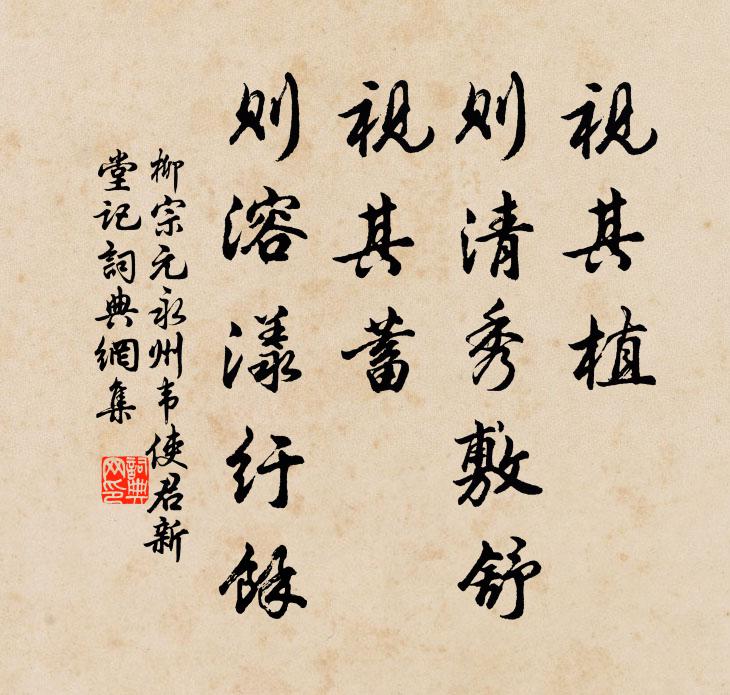 视其植
则清秀敷舒
视其蓄
则溶漾纡餘
柳宗元永州韦使君新
堂记詞典網集
詞典
网印